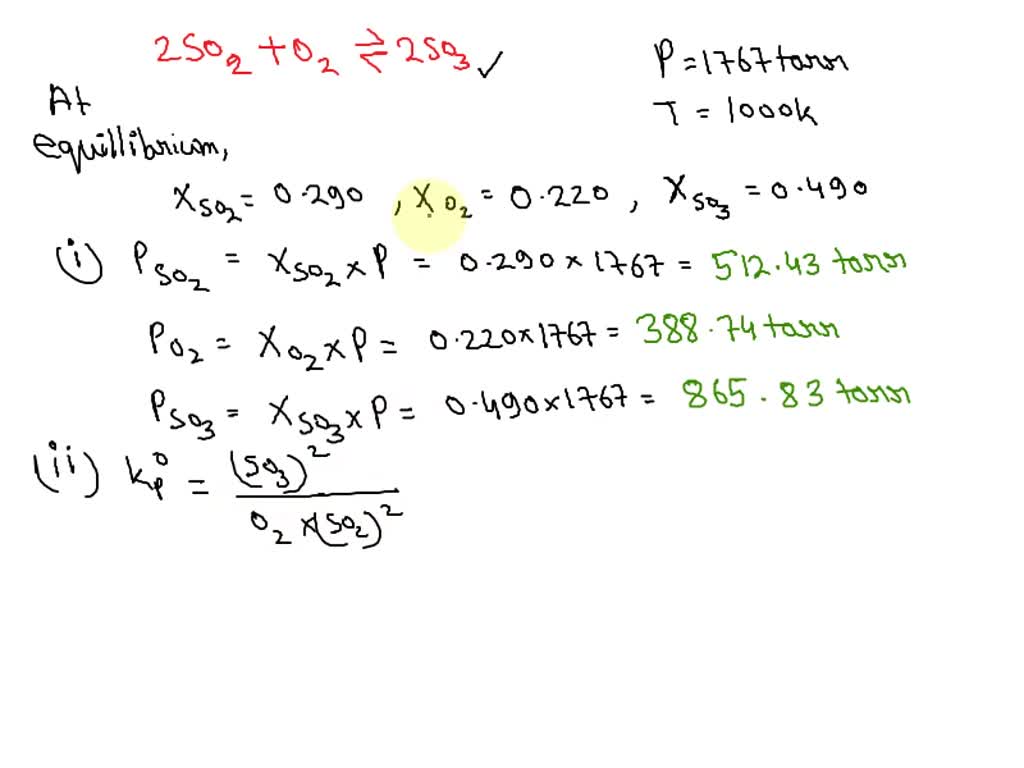 2SO₂ + O₂ ⇌ 2SO₃ ✓
P = 1767 torr
T = 1000k
At
equillibrium,
X_SO₂ = 0.290 , X_O₂ = 0.220 , X_SO₃ = 0.490
(i) P_SO₂ = X_SO₂ × P = 0.290 × 1767 = 512.43 torr
P_O₂ = X_O₂ × P = 0.220 × 1767 = 388.74 torr
P_SO₃ = X_SO₃ × P = 0.490 × 1767 = 865.83 torr
(ii) k_p⁰ = (SO₃)²
O₂ × (SO₂)²